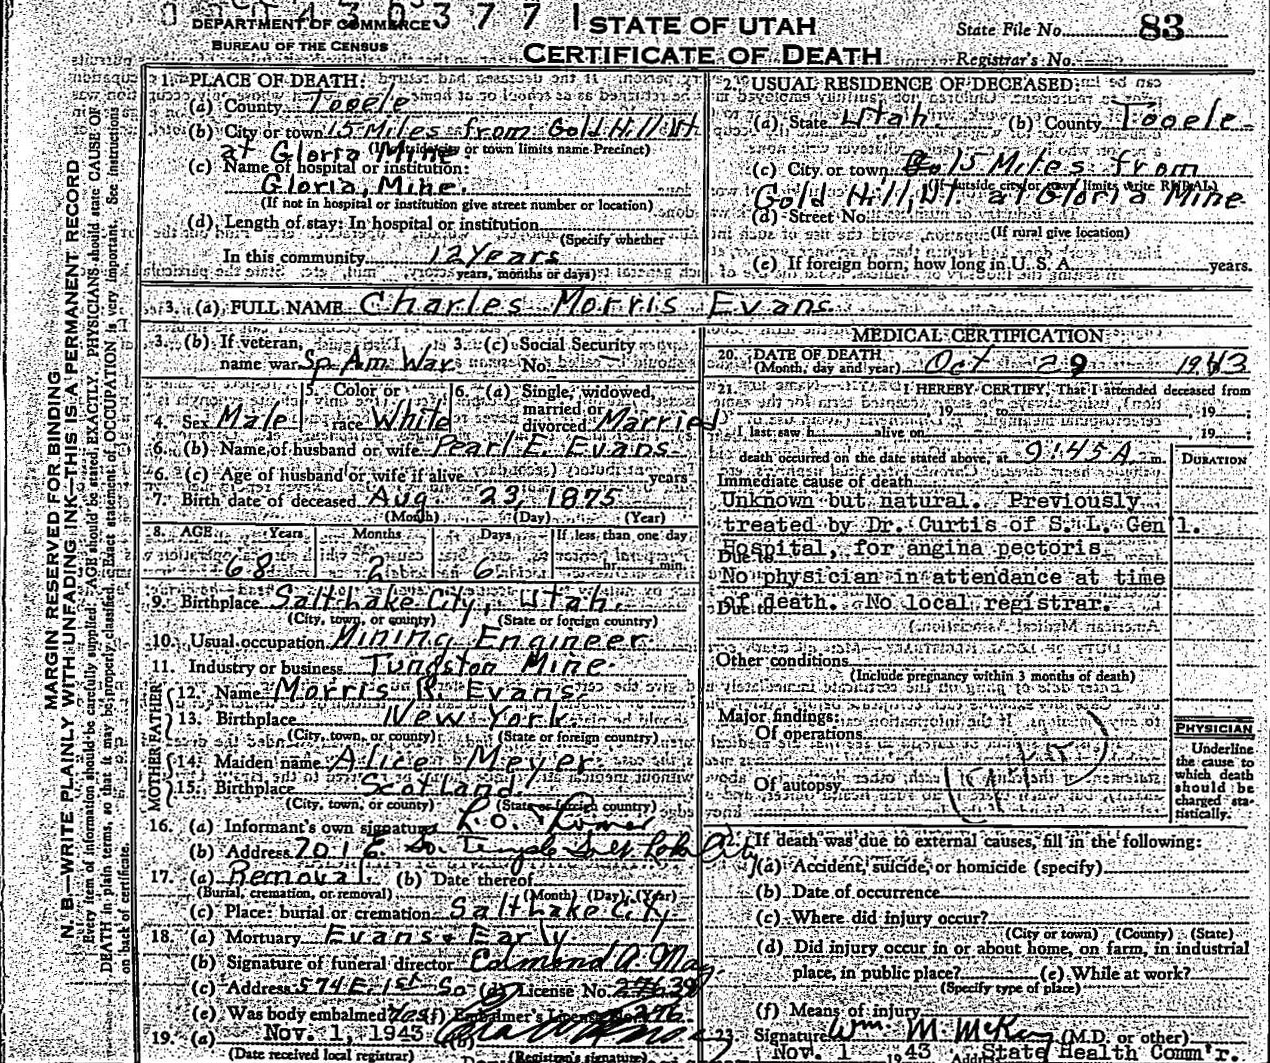 DEPARTMENT OF COMMERCE
BUREAU OF THE CENSUS
STATE OF UTAH
CERTIFICATE OF DEATH
State File No. 83
Registrar's No.
MARGIN RESERVED FOR BINDING
N. B.—WRITE PLAINLY WITH UNFADING INK—THIS IS A PERMANENT RECORD
Every item of information should be carefully supplied. AGE should be stated EXACTLY. PHYSICIANS should state CAUSE OF
DEATH in plain terms, so that it may be properly classified. Exact statement of OCCUPATION is very important. See instructions
on back of certificate.
1. PLACE OF DEATH:
(a) County Tooele
(b) City or town 15 Miles from Gold Hill Ut
at Gloria Mine
(If outside city or town limits name Precinct)
(c) Name of hospital or institution:
Gloria, Mine.
(If not in hospital or institution give street number or location)
(d) Length of stay: In hospital or institution
(Specify whether
In this community 12 Years
years, months or days)
2. USUAL RESIDENCE OF DECEASED:
(a) State Utah (b) County Tooele
(c) City or town 15 Miles from
(If outside city or town limits write RURAL)
Gold Hill, Ut. at Gloria Mine
(d) Street No.
(If rural give location)
(e) If foreign born, how long in U. S. A. years.
3. (a) FULL NAME Charles Morris Evans
3. (b) If veteran, name war Sp. Am War
3. (c) Social Security No.
4. Sex Male
5. Color or race White
6. (a) Single, widowed, married or divorced Married
6. (b) Name of husband or wife Pearl E. Evans
6. (c) Age of husband or wife if alive years
7. Birth date of deceased Aug. 23, 1875
(Month) (Day) (Year)
8. AGE Years Months Days If less than one day
68 2 6 hr. min.
9. Birthplace Salt Lake City, Utah.
(City, town, or county) (State or foreign country)
10. Usual occupation Mining Engineer
11. Industry or business Tungston Mine
FATHER
12. Name Morris R. Evans
13. Birthplace New York
(City, town, or county) (State or foreign country)
MOTHER
14. Maiden name Alice Meyer
15. Birthplace Scotland
(City, town, or county) (State or foreign country)
16. (a) Informant's own signature
(b) Address 701 E. So. Temple Salt Lake City
17. (a) Removal (b) Date thereof
(Burial, cremation, or removal) (Month) (Day) (Year)
(c) Place: burial or cremation Salt Lake City
18. (a) Mortuary Evans & Early
(b) Signature of funeral director Edmond A. May
(c) Address 574 E. 1st So (d) License No.
(e) Was body embalmed? Yes (f) Embalmer's License No.
19. (a) Nov. 1, 1943 (b)
(Date received local registrar) (Registrar's signature)
MEDICAL CERTIFICATION
20. DATE OF DEATH
(Month, day and year) Oct 29 1943
21. I HEREBY CERTIFY, That I attended deceased from
19 to 19
I last saw h alive on 19
death occurred on the date stated above, at 9:45 A. m.
DURATION
Immediate cause of death
Unknown but natural. Previously
treated by Dr. Curtis of S. L. Gen'l.
Hospital, for angina pectoris
Due to
No physician in attendance at time
of death. No local registrar.
Due to
Other conditions
(Include pregnancy within 3 months of death)
Major findings:
Of operations
Of autopsy
PHYSICIAN
Underline
the cause to
which death
should be
charged sta-
tistically.
22. If death was due to external causes, fill in the following:
(a) Accident, suicide, or homicide (specify)
(b) Date of occurrence
(c) Where did injury occur?
(City or town) (County) (State)
(d) Did injury occur in or about home, on farm, in industrial
place, in public place? (e) While at work?
(Specify type of place)
(f) Means of injury
23. Signature Wm. M. McKay (M.D. or other)
Nov. 1 1943 State Health Comm'r.